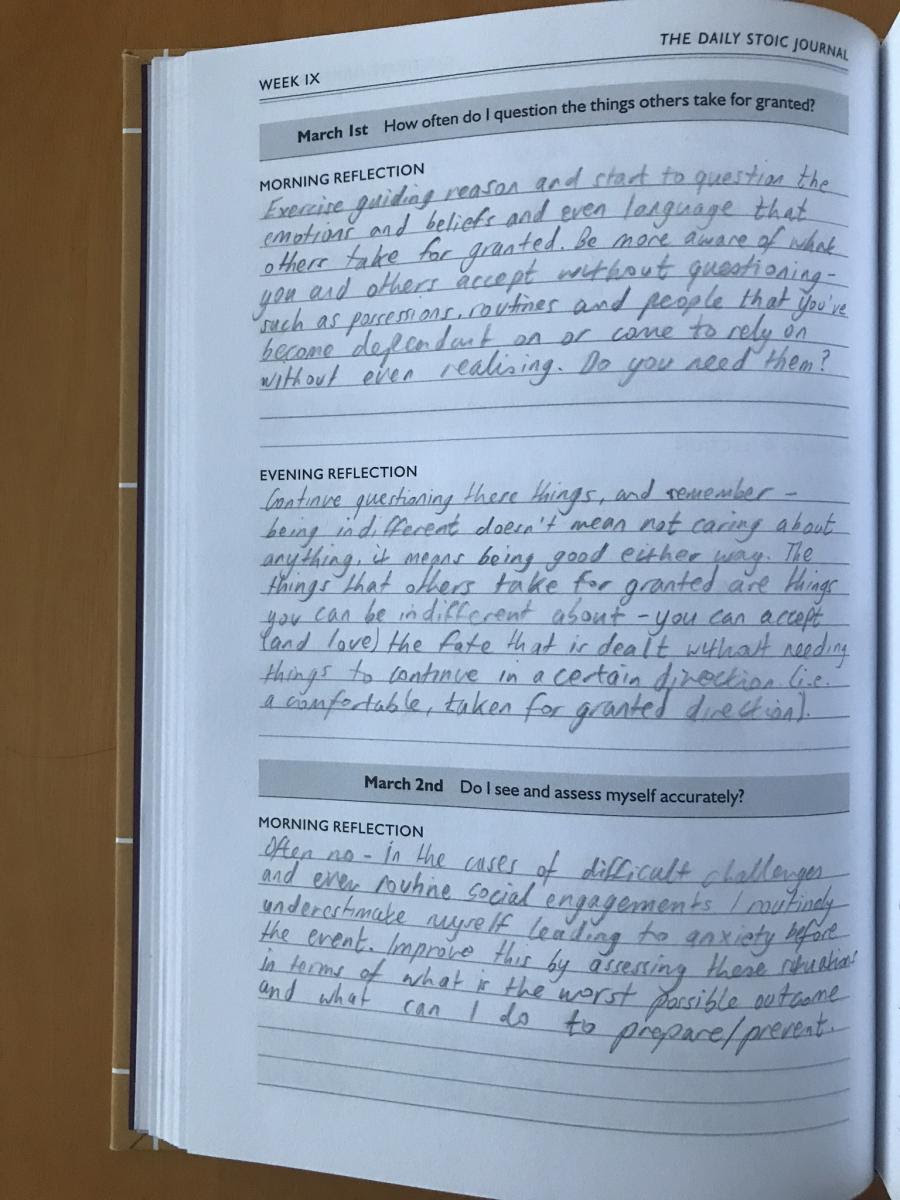 WEEK IX
THE DAILY STOIC JOURNAL
March 1st How often do I question the things others take for granted?
MORNING REFLECTION
Exercise guiding reason and start to question the
emotions and beliefs and even language that
others take for granted. Be more aware of what
you and others accept without questioning -
such as possessions, routines and people that you've
become dependant on or come to rely on
without even realising. Do you need them?
EVENING REFLECTION
Continue questioning these things, and remember -
being indifferent doesn't mean not caring about
anything, it means being good either way. The
things that others take for granted are things
you can be indifferent about - you can accept
(and love) the fate that is dealt without needing
things to continue in a certain direction (i.e.
a comfortable, taken for granted direction).
March 2nd Do I see and assess myself accurately?
MORNING REFLECTION
Often no - in the cases of difficult challenges
and even routine social engagements I routinely
underestimate myself leading to anxiety before
the event. Improve this by assessing these situations
in terms of what is the worst possible outcome
and what can I do to prepare/prevent.